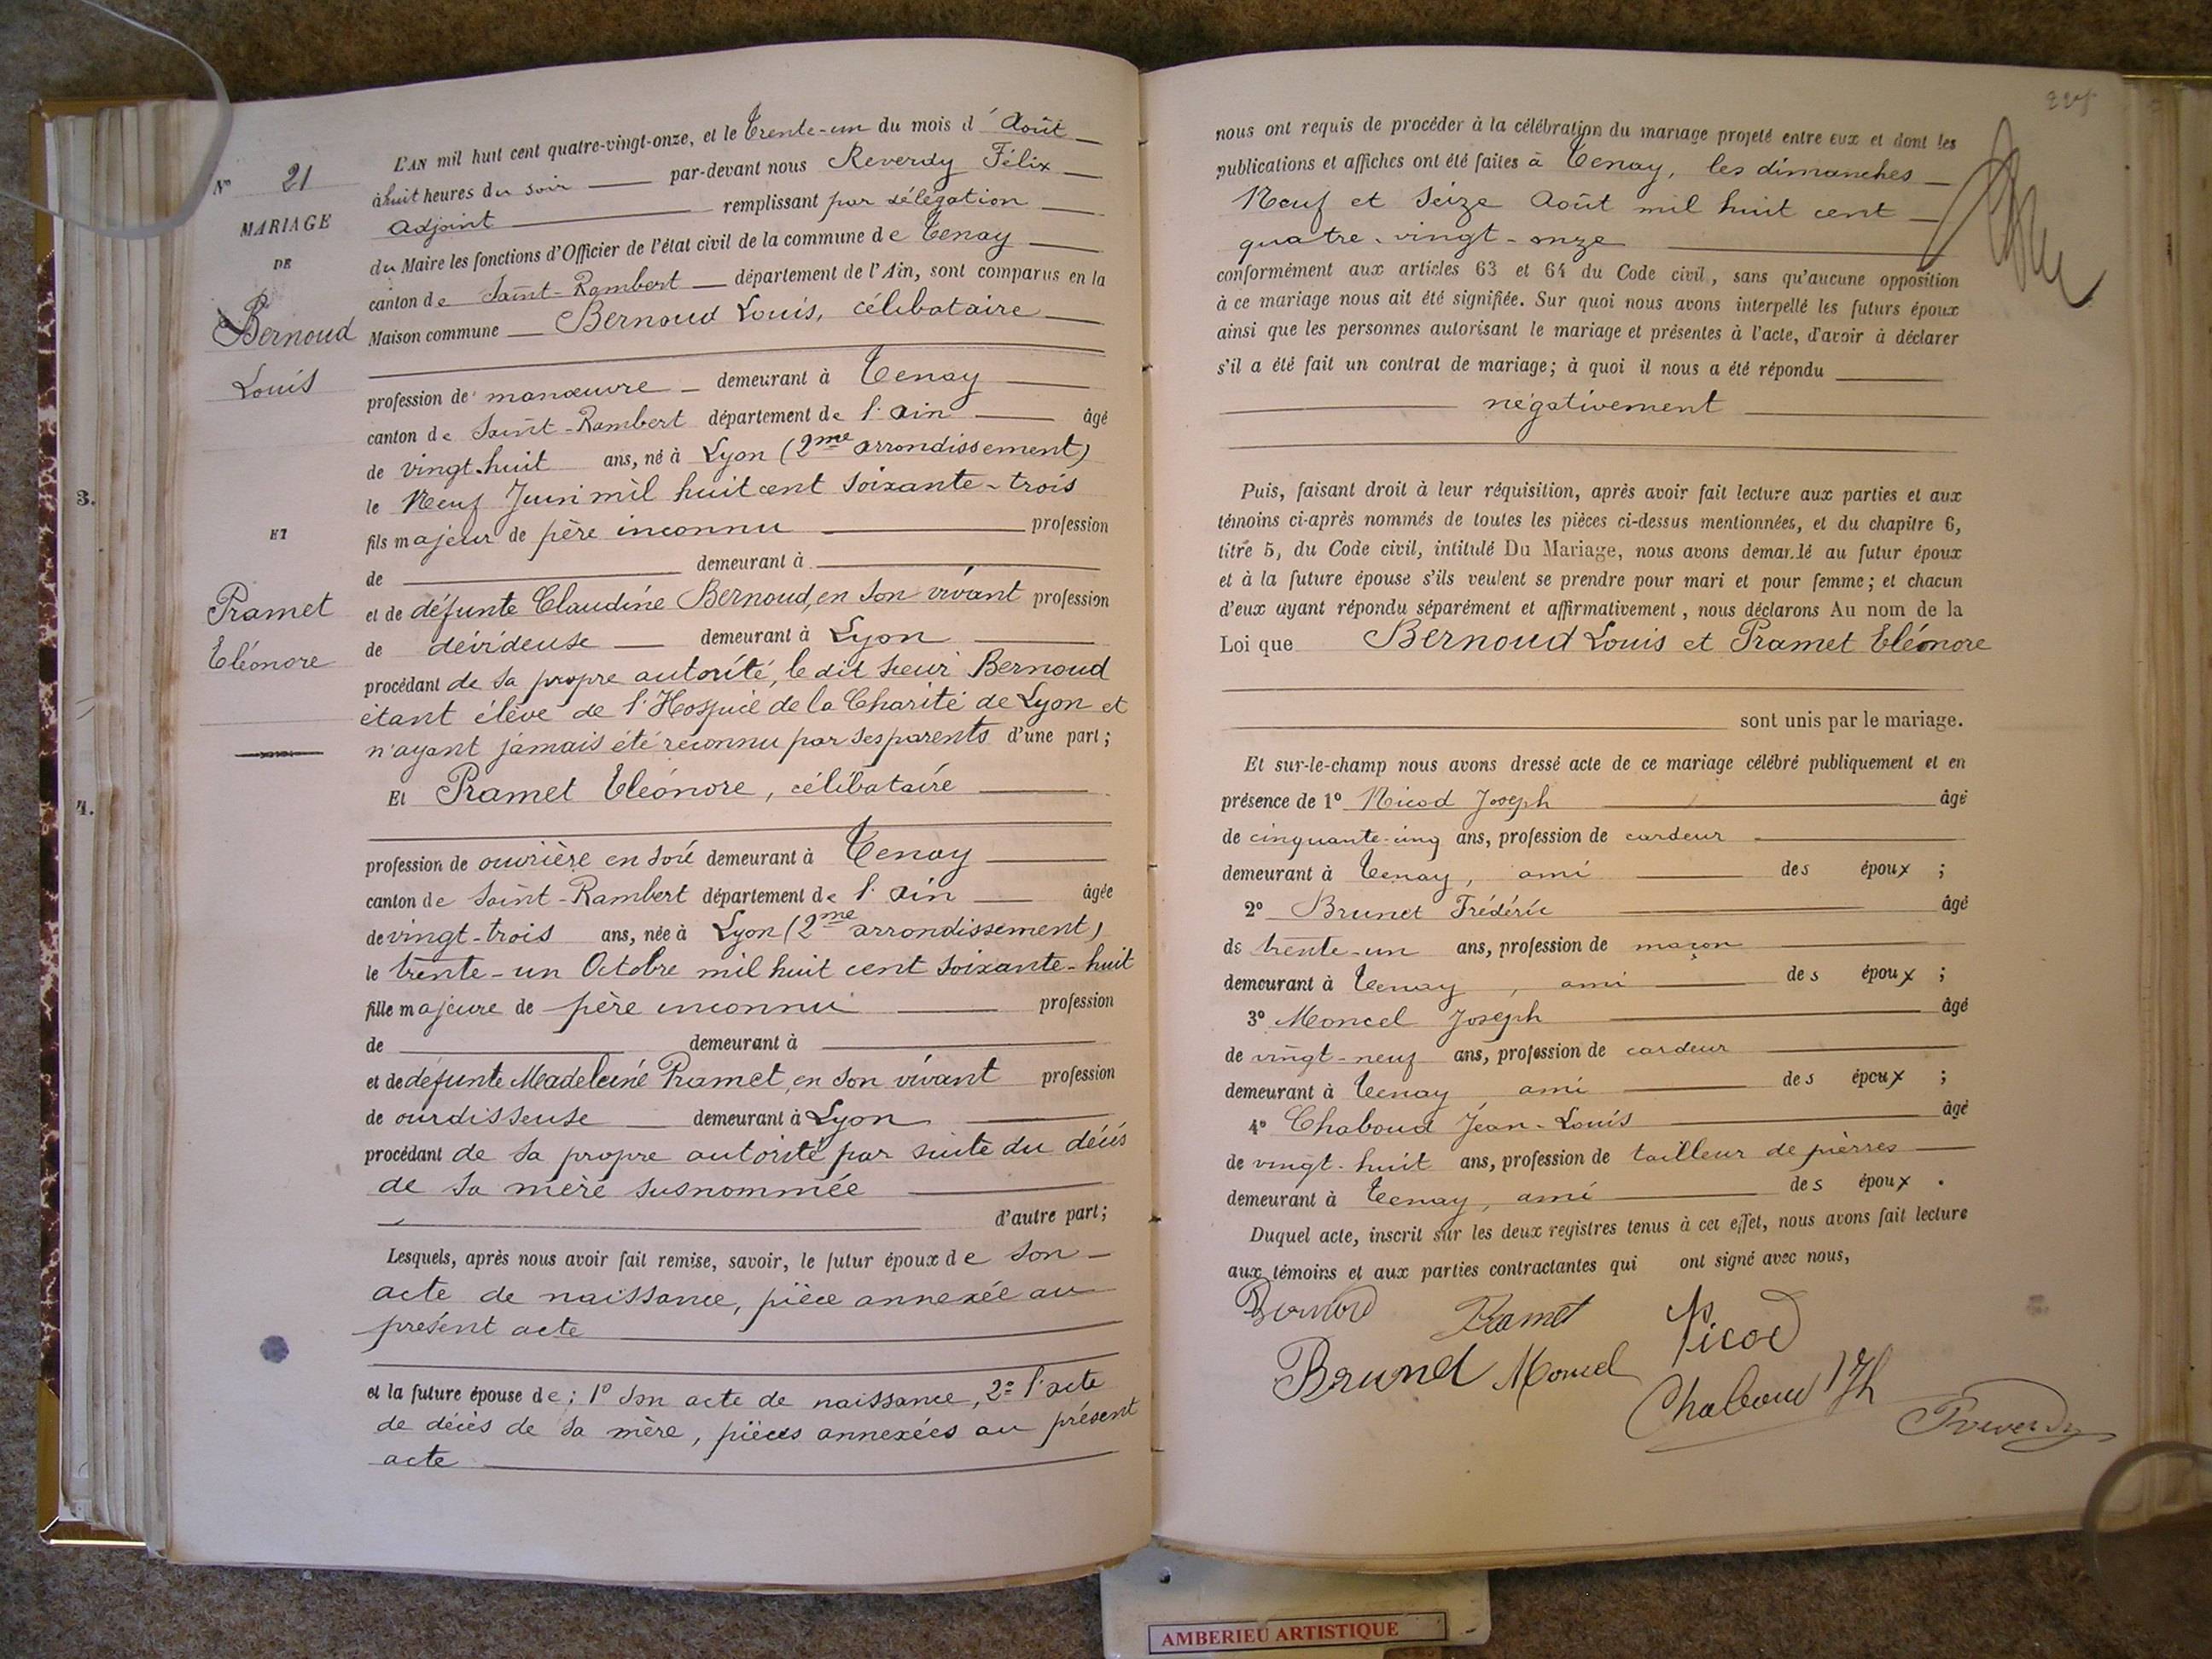 N° 21
MARIAGE
DE
Bernoud
Louis
ET
Pramet
Eléonore
3.
4.
L'AN mil huit cent quatre-vingt-onze, et le Trente-un du mois d'Août
à huit heures du soir par-devant nous Reverdy Félix
adjoint remplissant par délégation
du Maire les fonctions d'Officier de l'état civil de la commune de Tenay
canton de Saint-Rambert département de l'Ain, sont comparus en la
Maison commune Bernoud Louis, célibataire
profession de manœuvre demeurant à Tenay
canton de Saint-Rambert département de l'Ain âgé
de vingt-huit ans, né à Lyon (2me arrondissement)
le Neuf Juin mil huit cent soixante-trois
fils majeur de père inconnu profession
de demeurant à
et de défunte Claudine Bernoud, en son vivant profession
de dévideuse demeurant à Lyon
procédant de sa propre autorité, le dit sieur Bernoud
étant élève de l'Hospice de la Charité de Lyon et
n'ayant jamais été reconnu par ses parents d'une part;
Et Pramet Eléonore, célibataire
profession de ouvrière en soie demeurant à Tenay
canton de Saint-Rambert département de l'Ain âgée
de vingt-trois ans, née à Lyon (2me arrondissement)
le trente-un Octobre mil huit cent soixante-huit
fille majeure de père inconnu profession
de demeurant à
et de défunte Madeleine Pramet, en son vivant profession
de ourdisseuse demeurant à Lyon
procédant de sa propre autorité par suite du décès
de sa mère susnommée
d'autre part;
Lesquels, après nous avoir fait remise, savoir, le futur époux de son
acte de naissance, pièce annexée au
présent acte
et la future épouse de: 1° son acte de naissance, 2° l'acte
de décès de sa mère, pièces annexées au présent
acte
nous ont requis de procéder à la célébration du mariage projeté entre eux et dont les
publications et affiches ont été faites à Tenay, les dimanches
Neuf et Seize Août mil huit cent
quatre-vingt-onze
conformément aux articles 63 et 64 du Code civil, sans qu'aucune opposition
à ce mariage nous ait été signifiée. Sur quoi nous avons interpellé les futurs époux
ainsi que les personnes autorisant le mariage et présentes à l'acte, d'avoir à déclarer
s'il a été fait un contrat de mariage; à quoi il nous a été répondu
négativement
Puis, faisant droit à leur réquisition, après avoir fait lecture aux parties et aux
témoins ci-après nommés de toutes les pièces ci-dessus mentionnées, et du chapitre 6,
titre 5, du Code civil, intitulé Du Mariage, nous avons demandé au futur époux
et à la future épouse s'ils veulent se prendre pour mari et pour femme; et chacun
d'eux ayant répondu séparément et affirmativement, nous déclarons Au nom de la
Loi que Bernoud Louis et Pramet Eléonore
sont unis par le mariage.
Et sur-le-champ nous avons dressé acte de ce mariage célébré publiquement et en
présence de 1° Nicod Joseph âgé
de cinquante-cinq ans, profession de cardeur
demeurant à Tenay, ami des époux ;
2° Brunet Frédéric âgé
de trente-un ans, profession de maçon
demeurant à Tenay, ami des époux ;
3° Moncel Joseph âgé
de vingt-neuf ans, profession de cardeur
demeurant à Tenay, ami des époux ;
4° Chaboud Jean-Louis âgé
de vingt-huit ans, profession de tailleur de pierres
demeurant à Tenay, ami des époux .
Duquel acte, inscrit sur les deux registres tenus à cet effet, nous avons fait lecture
aux témoins et aux parties contractantes qui ont signé avec nous,
Bernoud Pramet Nicod
Brunet Moncel
Chaboud
Reverdy
AMBERIEU ARTISTIQUE